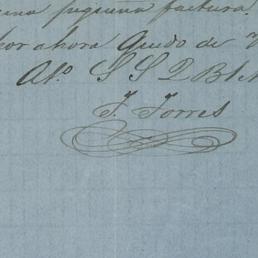 una pequeña factura.
por ahora Quedo de V
At.º S S Q B S M
F. Torres